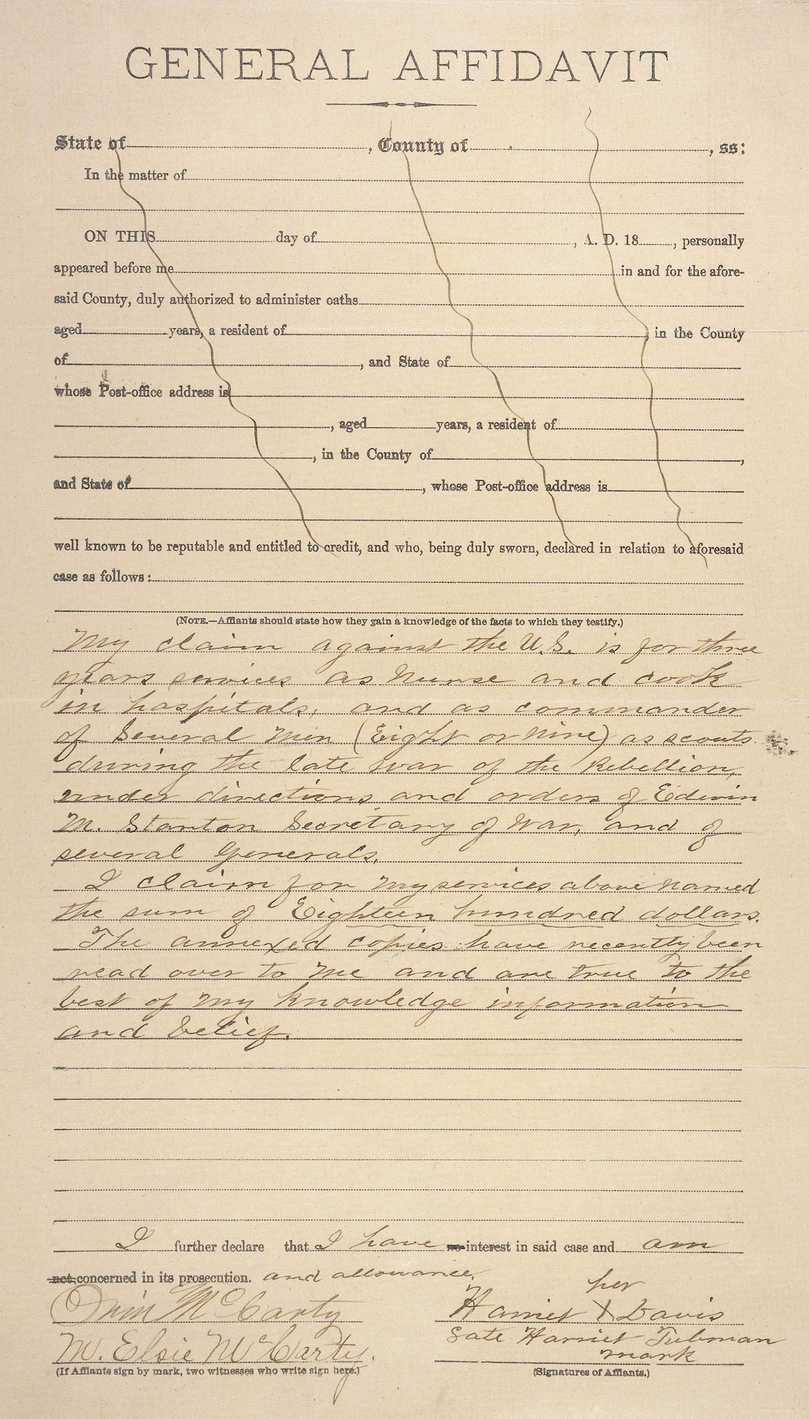 GENERAL AFFIDAVIT
State of , County of , ss:
In the matter of
ON THIS day of , A. D. 18 , personally
appeared before me in and for the afore-
said County, duly authorized to administer oaths
aged years, a resident of in the County
of , and State of
whose Post-office address is
, aged years, a resident of
, in the County of ,
and State of , whose Post-office address is
well known to be reputable and entitled to credit, and who, being duly sworn, declared in relation to aforesaid
case as follows:
(NOTE.—Affiants should state how they gain a knowledge of the facts to which they testify.)
My claim against the U.S. is for three
years services as nurse and cook
in hospitals, and as commander
of Several Men (Eight or Nine) as scouts
during the late war of the Rebellion,
under directions and orders of Edwin
M. Stanton Secretary of War, and of
several Generals.
I claim for my services above named
the sum of Eighteen hundred dollars.
The annexed copies have recently been
read over to me and are true to the
best of my knowledge information
and belief.
I further declare that I have no interest in said case and am
not concerned in its prosecution. and allowance.
her
Orin McCarty Harriet X Davis
late Harriet Tubman
W. Elsie McCarty. mark
(If Affiants sign by mark, two witnesses who write sign here.) (Signatures of Affiants.)